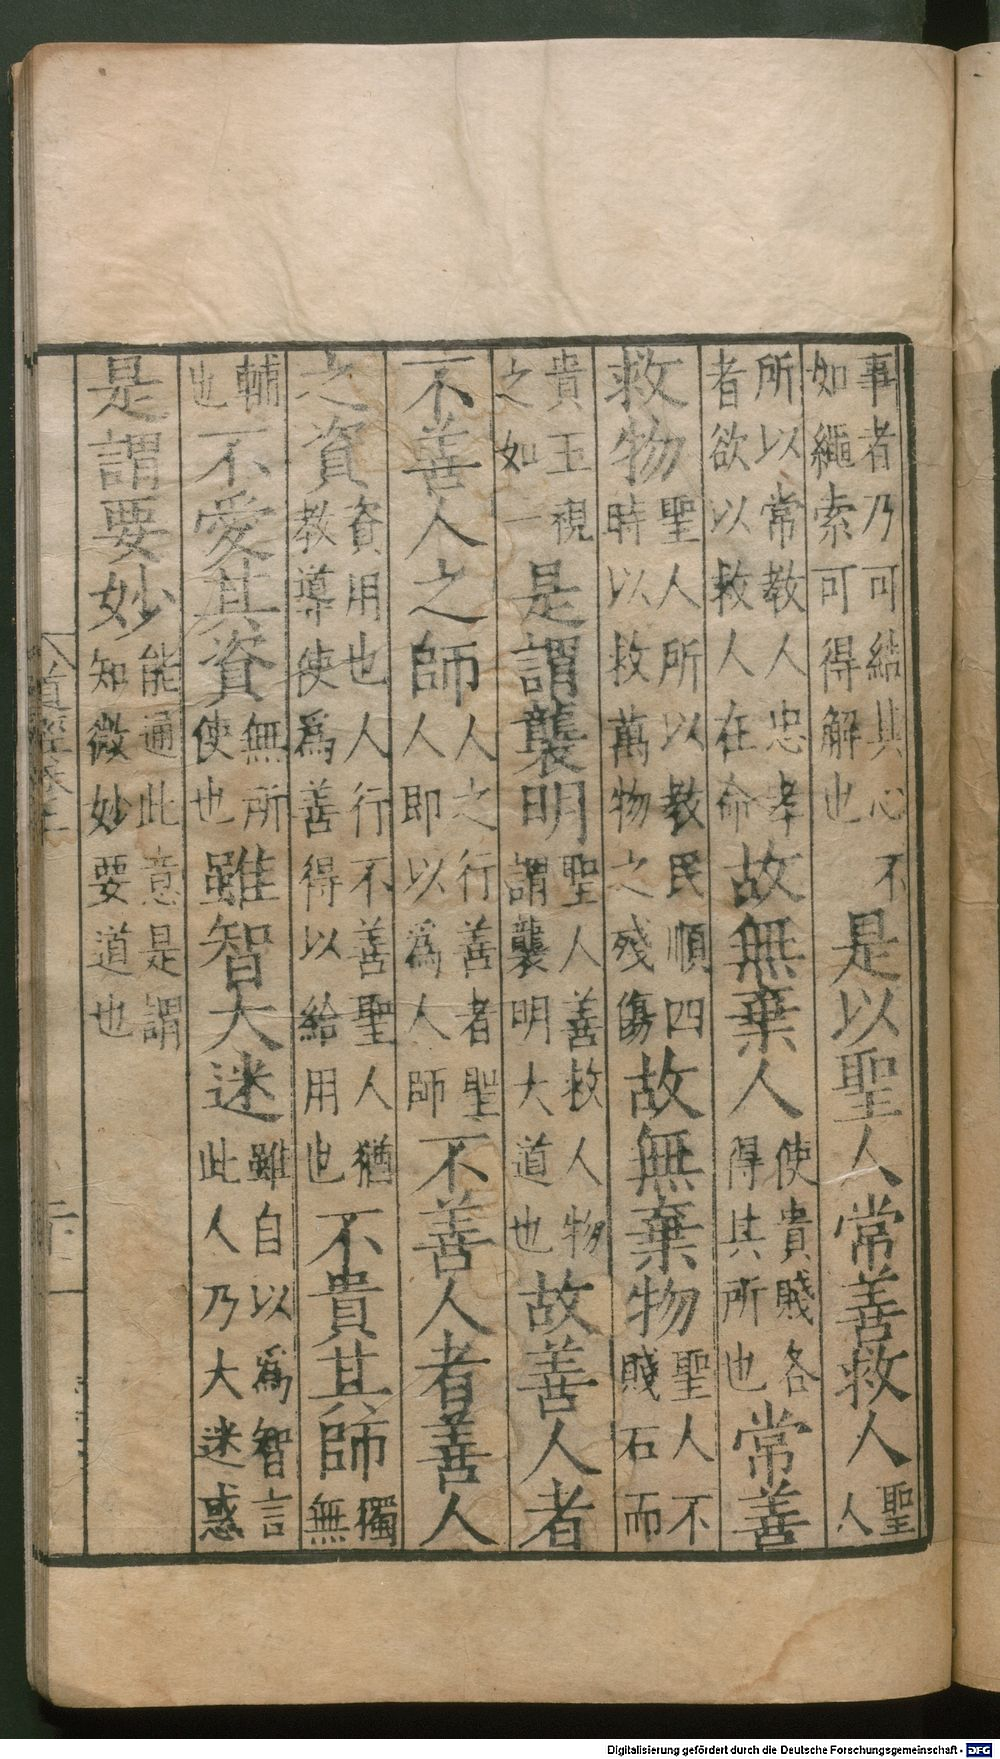 事者乃可結其心不如繩索可得解也是以聖人常善救人聖人
所以常教人忠孝者欲以救人在命故無棄人使貴賤各得其所也常善
救物聖人所以教民順四時以救萬物之殘傷故無棄物聖人不賤石而
貴玉視之如一是謂襲明聖人善救人物謂襲明大道也故善人者
不善人之師人之行善者聖人即以爲人師不善人者善人
之資資用也人行不善聖人猶教導使爲善得以給用也不貴其師獨無
輔也不愛其資無所使也雖智大迷雖自以爲智言此人乃大迷惑
是謂要妙能通此意是謂知微妙要道也
道經卷上
Digitalisierung gefördert durch die Deutsche Forschungsgemeinschaft - DFG